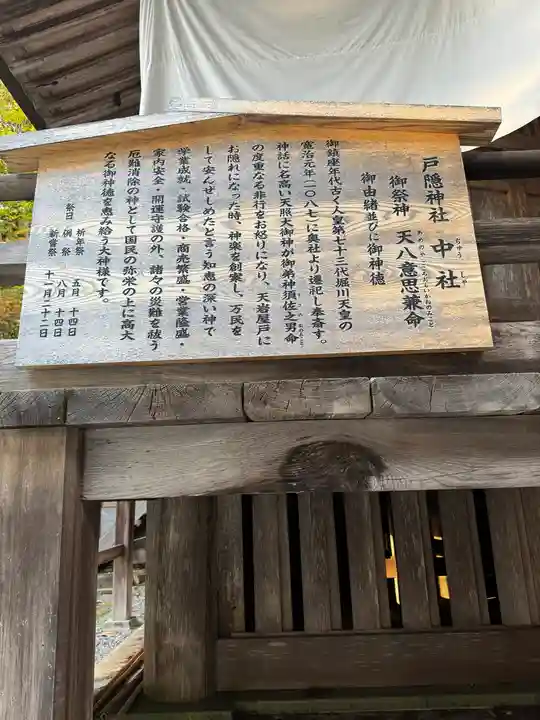 戸隠神社 中社
ちゅう しゃ
御祭神 天八意思兼命
御由緒並びに御神徳
御鎮座年代古く人皇第七十三代堀川天皇の
寛治元年(一〇八七)に奥社より遷祀し奉斎す。
神話に名高い天照大御神が御弟神須佐之男命
の度重なる非行をお怒りになり、天岩屋戸に
お隠れになった時、神楽を創楽し、万民を
して安んぜしめたと言う知恵の深い神で
学業成就・試験合格・商売繁盛・営業隆盛・
家内安全・開運守護の外、諸々の災難を祓う
厄難消除の神として国民の弥栄の上に高大
なる御神徳を恵み給う大神様です。
祭日 祈年祭 五月 十四日
例祭 八月 十四日
新嘗祭 十一月二十二日